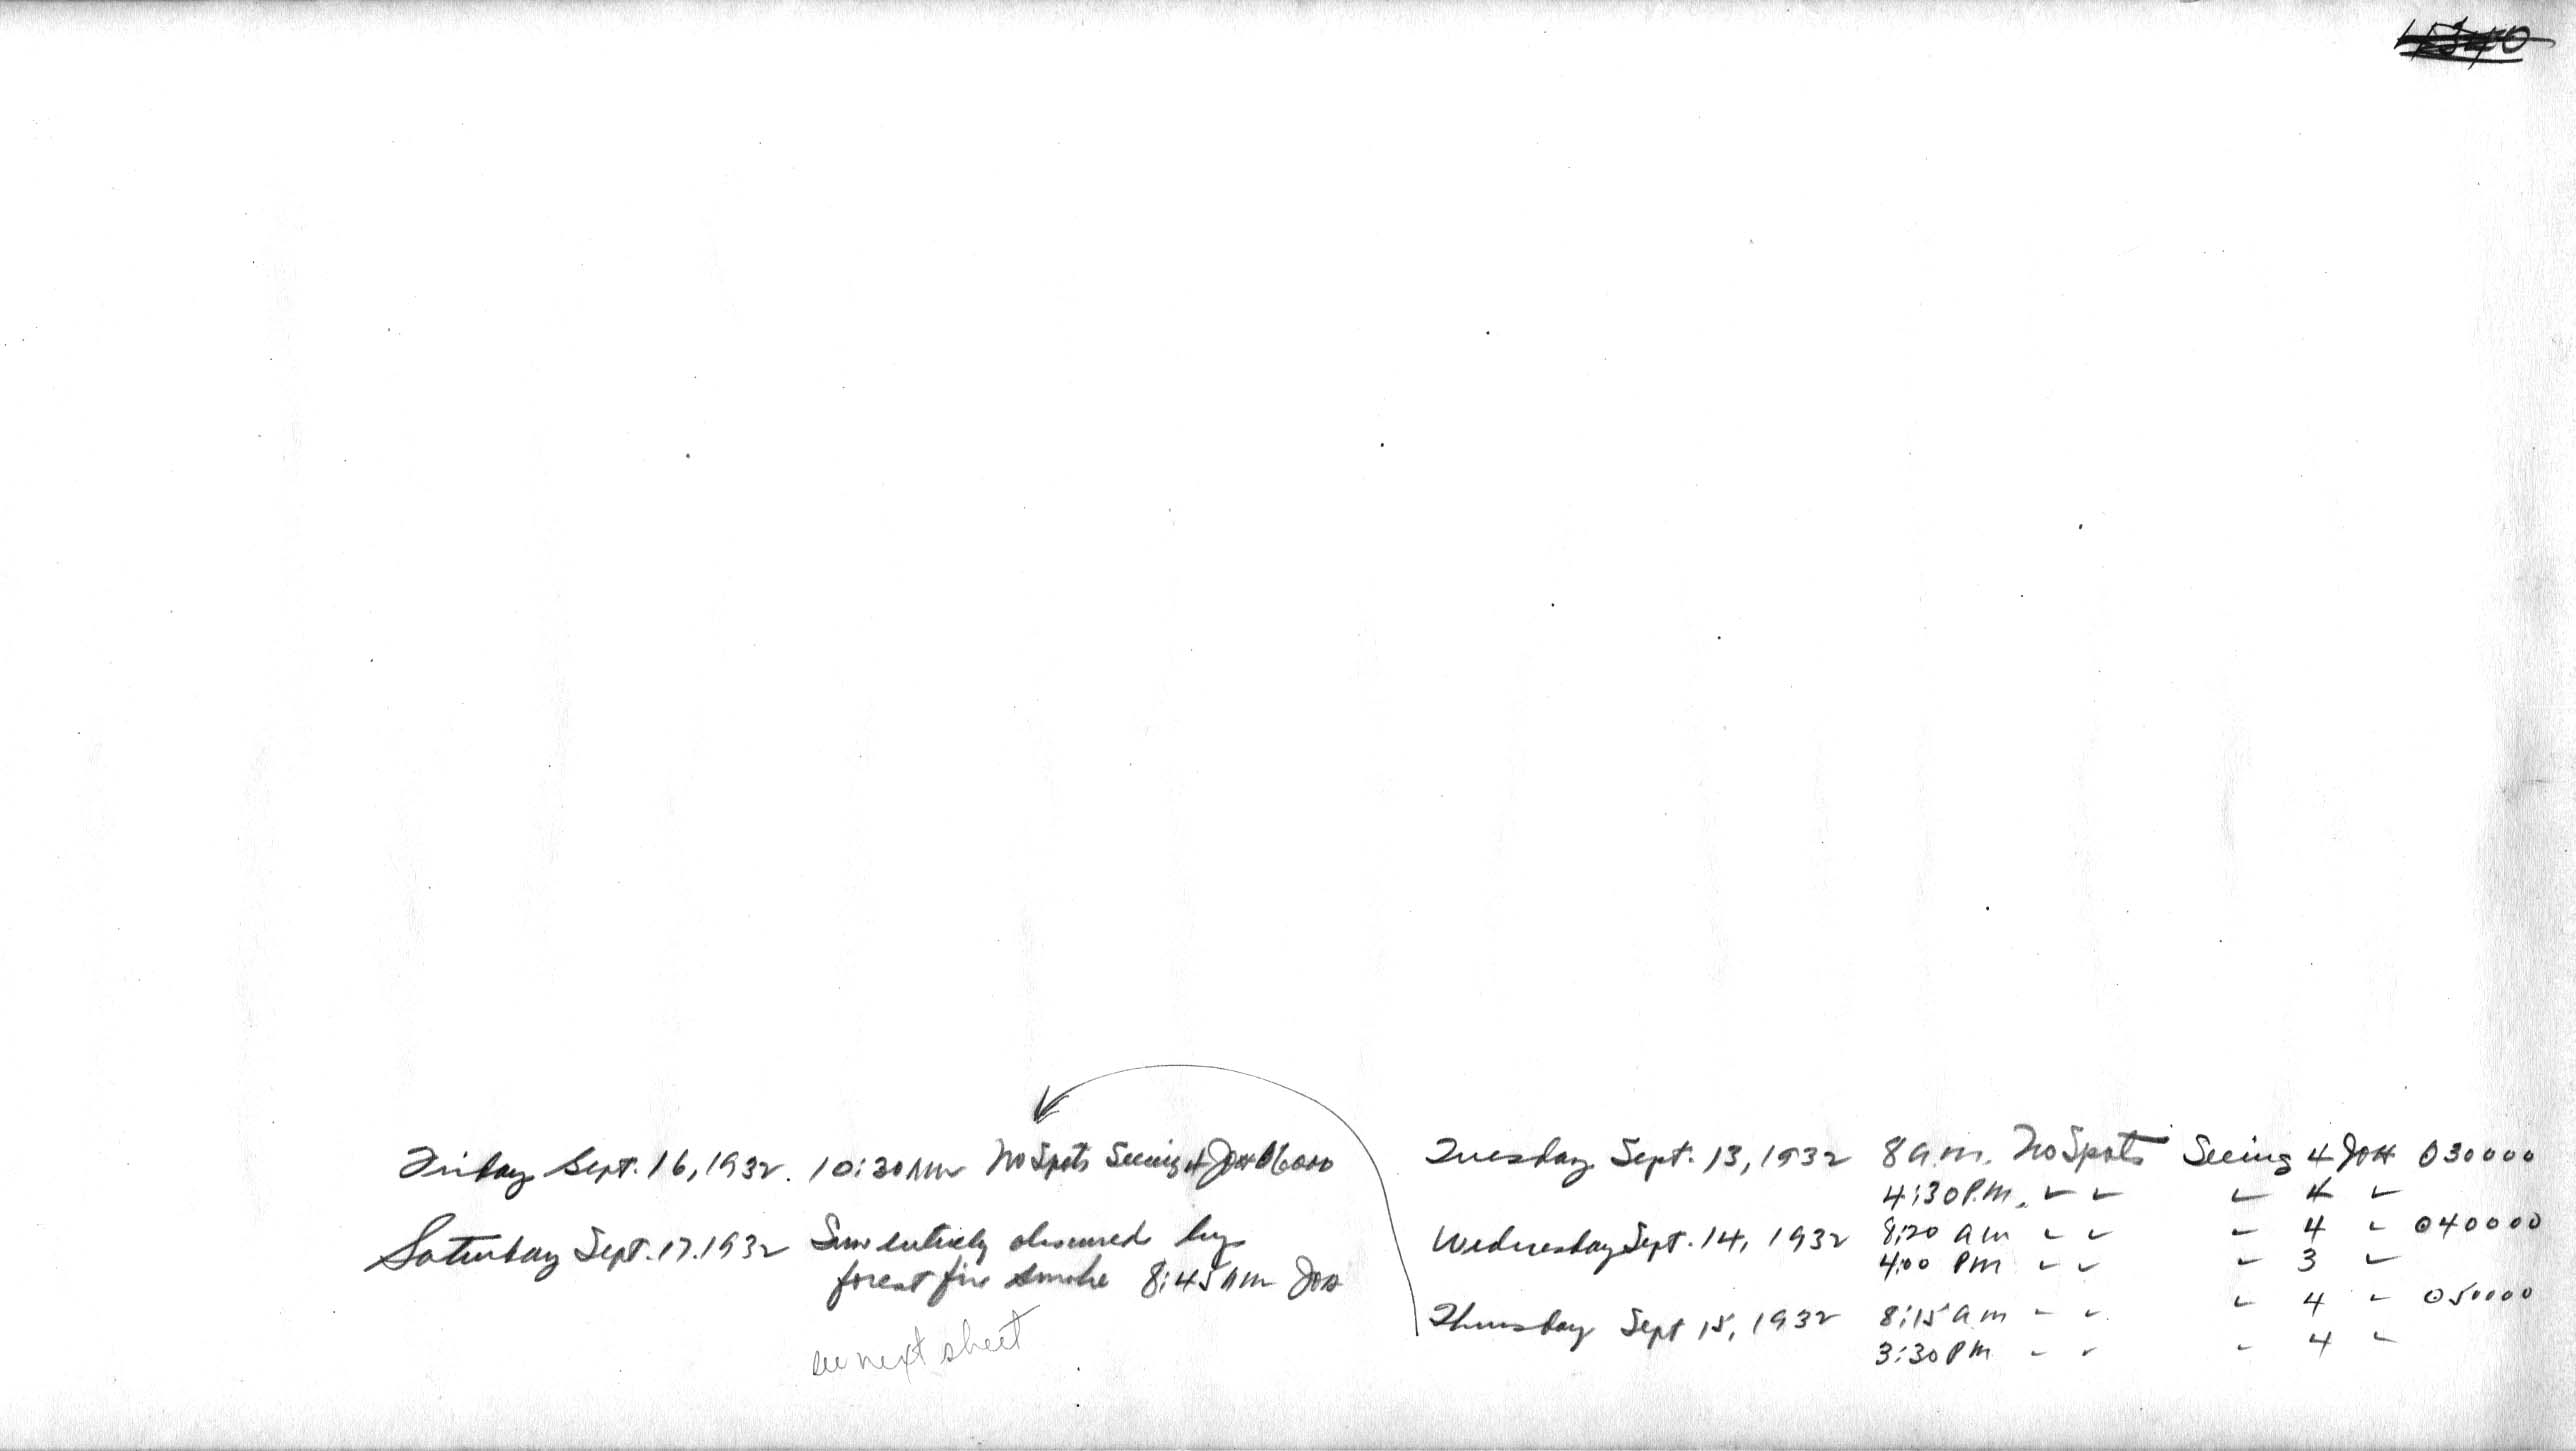 Tuesday Sept. 13, 1932 8 a.m. No Spots Seeing 4 JOH 030000
4:30 P.M. " " " 4 "
Wednesday Sept. 14, 1932 8:20 am " " " 4 " 040000
4:00 PM " " " 3 "
Thursday Sept 15, 1932 8:15 am " " " 4 " 050000
3:30 PM " " " 4 "
Friday Sept. 16, 1932. 10:30 AM No Spots Seeing 4 JOH 06000
Saturday Sept. 17. 1932 Sun entirely obscured by
forest fire smoke 8:45 AM JOH
see next sheet